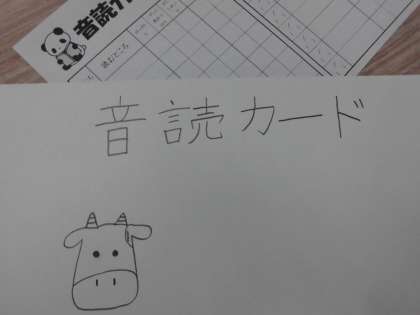 音読カ
読むところ
音読カード